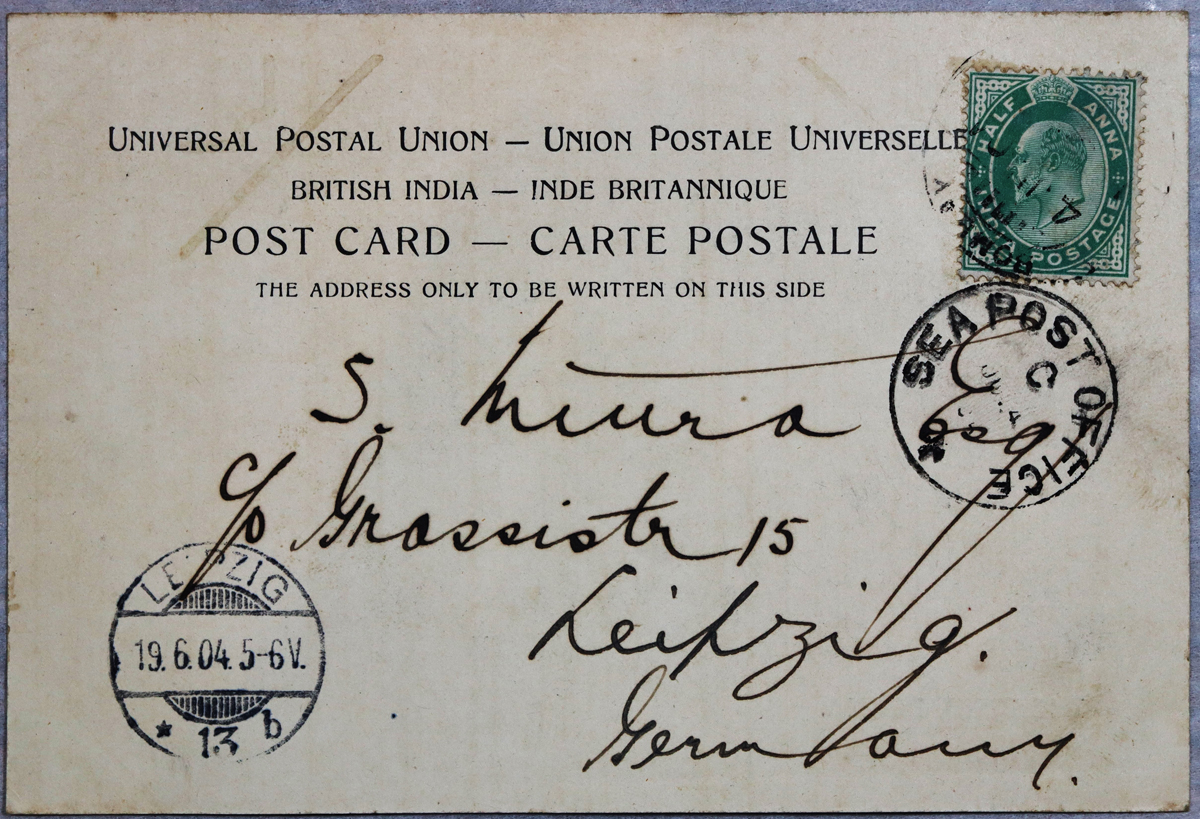 UNIVERSAL POSTAL UNION — UNION POSTALE UNIVERSELLE
BRITISH INDIA — INDE BRITANNIQUE
POST CARD — CARTE POSTALE
THE ADDRESS ONLY TO BE WRITTEN ON THIS SIDE
HALF ANNA
INDIA POSTAGE
SEA POST OFFICE
C
S. Miura Esq
c/o Grassistr 15
Leipzig.
Germany.
LEIPZIG
19.6.04. 5-6V.
* 13 b